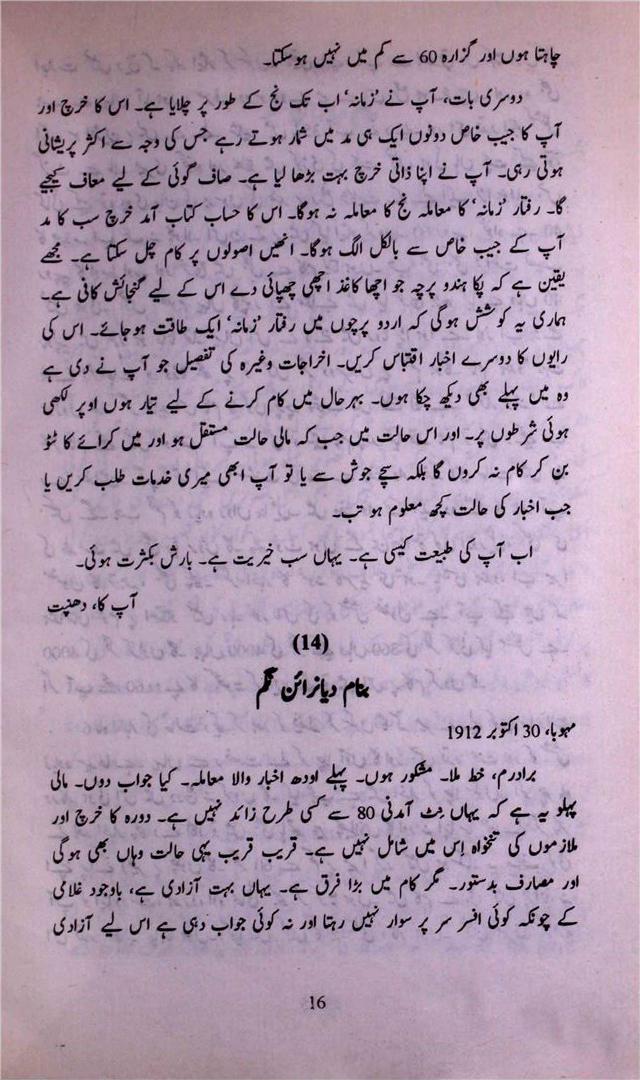 چاہتا ہوں اور گزارہ 60 سے کم میں نہیں ہوسکتا۔
دوسری بات، آپ نے 'زمانہ' اب تک نج کے طور پر چلایا ہے۔ اس کا خرچ اور
آپ کا جیب خاص دونوں ایک ہی مد میں شمار ہوتے رہے جس کی وجہ سے اکثر پریشانی
ہوتی رہی۔ آپ نے اپنا ذاتی خرچ بہت بڑھا لیا ہے۔ صاف گوئی کے لیے معاف کیجیے
گا۔ رفتار 'زمانہ' کا معاملہ نج کا معاملہ نہ ہوگا۔ اس کا حساب کتاب آمد خرچ سب کا مد
آپ کے جیب خاص سے بالکل الگ ہوگا۔ انھیں اصولوں پر کام چل سکتا ہے۔ مجھے
یقین ہے کہ پکا ہندو پرچہ جو اچھا کاغذ اچھی چھپائی دے اس کے لیے گنجائش کافی ہے۔
ہماری یہ کوشش ہوگی کہ اردو پرچوں میں رفتار 'زمانہ' ایک طاقت ہوجائے۔ اس کی
رایوں کا دوسرے اخبار اقتباس کریں۔ اخراجات وغیرہ کی تفصیل جو آپ نے دی ہے
وہ میں پہلے بھی دیکھ چکا ہوں۔ بہرحال میں کام کرنے کے لیے تیار ہوں اوپر لکھی
ہوئی شرطوں پر۔ اور اس حالت میں جب کہ مالی حالت مستقل ہو اور میں کرائے کا ٹٹو
بن کر کام نہ کروں گا بلکہ سچے جوش سے یا تو آپ ابھی میری خدمات طلب کریں یا
جب اخبار کی حالت کچھ معلوم ہو تب۔
اب آپ کی طبیعت کیسی ہے۔ یہاں سب خیریت ہے۔ بارش بکثرت ہوئی۔
آپ کا، دھنپت
(14)
بنام دیانرائن نگم
مہوبا، 30 اکتوبر 1912
برادرم، خط ملا۔ مشکور ہوں۔ پہلے اودھ اخبار والا معاملہ۔ کیا جواب دوں۔ مالی
پہلو یہ ہے کہ یہاں نٹ آمدنی 80 سے کسی طرح زائد نہیں ہے۔ دورہ کا خرچ اور
ملازموں کی تنخواہ اِس میں شامل نہیں ہے۔ قریب قریب یہی حالت وہاں بھی ہوگی
اور مصارف بدستور۔ مگر کام میں بڑا فرق ہے۔ یہاں بہت آزادی ہے، باوجود غلامی
کے چونکہ کوئی افسر سر پر سوار نہیں رہتا اور نہ کوئی جواب دہی ہے اس لیے آزادی
16